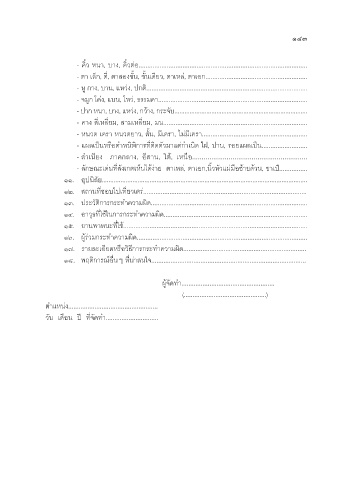 ๑๔๓
- คิ้ว หนา, บาง, คิ้วต่อ
- ตา เล็ก, ตี่, ตาสองชั้น, ชั้นเดียว, ตาเหล่, ตาเอก
- หู กาง, บาน, แหว่ง, ปกติ
- จมูก โด่ง, แบน, โหว่, ธรรมดา
- ปาก หนา, บาง, แหว่ง, กว้าง, กระจับ
- คาง สี่เหลี่ยม, สามเหลี่ยม, มน
- หนวด เครา หนวดยาว, สั้น, มีเครา, ไม่มีเครา
- แผลเป็นหรือตำหนิพิการที่ติดตัวมาแต่กำเนิด ไฝ, ปาน, รอยแผลเป็น
- สำเนียง ภาคกลาง, อีสาน, ใต้, เหนือ
- ลักษณะเด่นที่สังเกตเห็นได้ง่าย ตาเหล่, ตาเอก, นิ้วหัวแม่มือซ้ายด้วน, ขาเป๋
๑๑. อุปนิสัย
๑๒. สถานที่ชอบไปเที่ยวเตร่
๑๓. ประวัติการกระทำความผิด
๑๔. อาวุธที่ใช้ในการกระทำความผิด
๑๕. ยานพาหนะที่ใช้
๑๖. ผู้ร่วมกระทำความผิด
๑๗. รายละเอียดหรือวิธีการกระทำความผิด
๑๘. พฤติการณ์อื่นๆ ที่น่าสนใจ
ผู้จัดทำ
(..........)
ตำแหน่ง
วัน เดือน ปี ที่จัดทำ